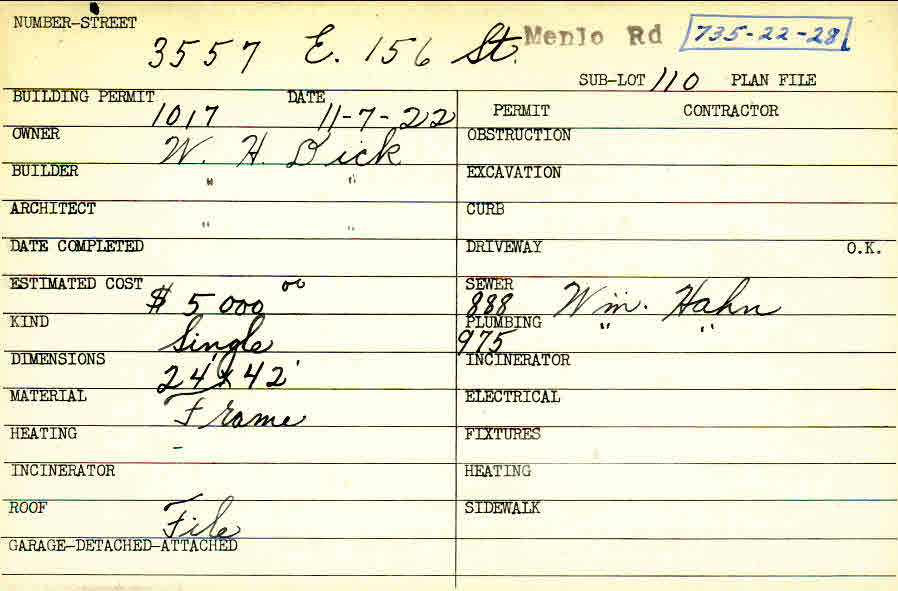 NUMBER-STREET
3557 E. 156 St. Menlo Rd 735-22-28
SUB-LOT 110 PLAN FILE
BUILDING PERMIT 1017 DATE 11-7-22
PERMIT CONTRACTOR
OWNER W. H. Dick
OBSTRUCTION
BUILDER " "
EXCAVATION
ARCHITECT " "
CURB
DATE COMPLETED
DRIVEWAY O.K.
ESTIMATED COST $ 5000 00
SEWER 888 Wm. Hahn
KIND Single
PLUMBING 975 " "
DIMENSIONS 24' x 42'
INCINERATOR
MATERIAL Frame
ELECTRICAL
HEATING -
FIXTURES
INCINERATOR
HEATING
ROOF File
SIDEWALK
GARAGE-DETACHED-ATTACHED